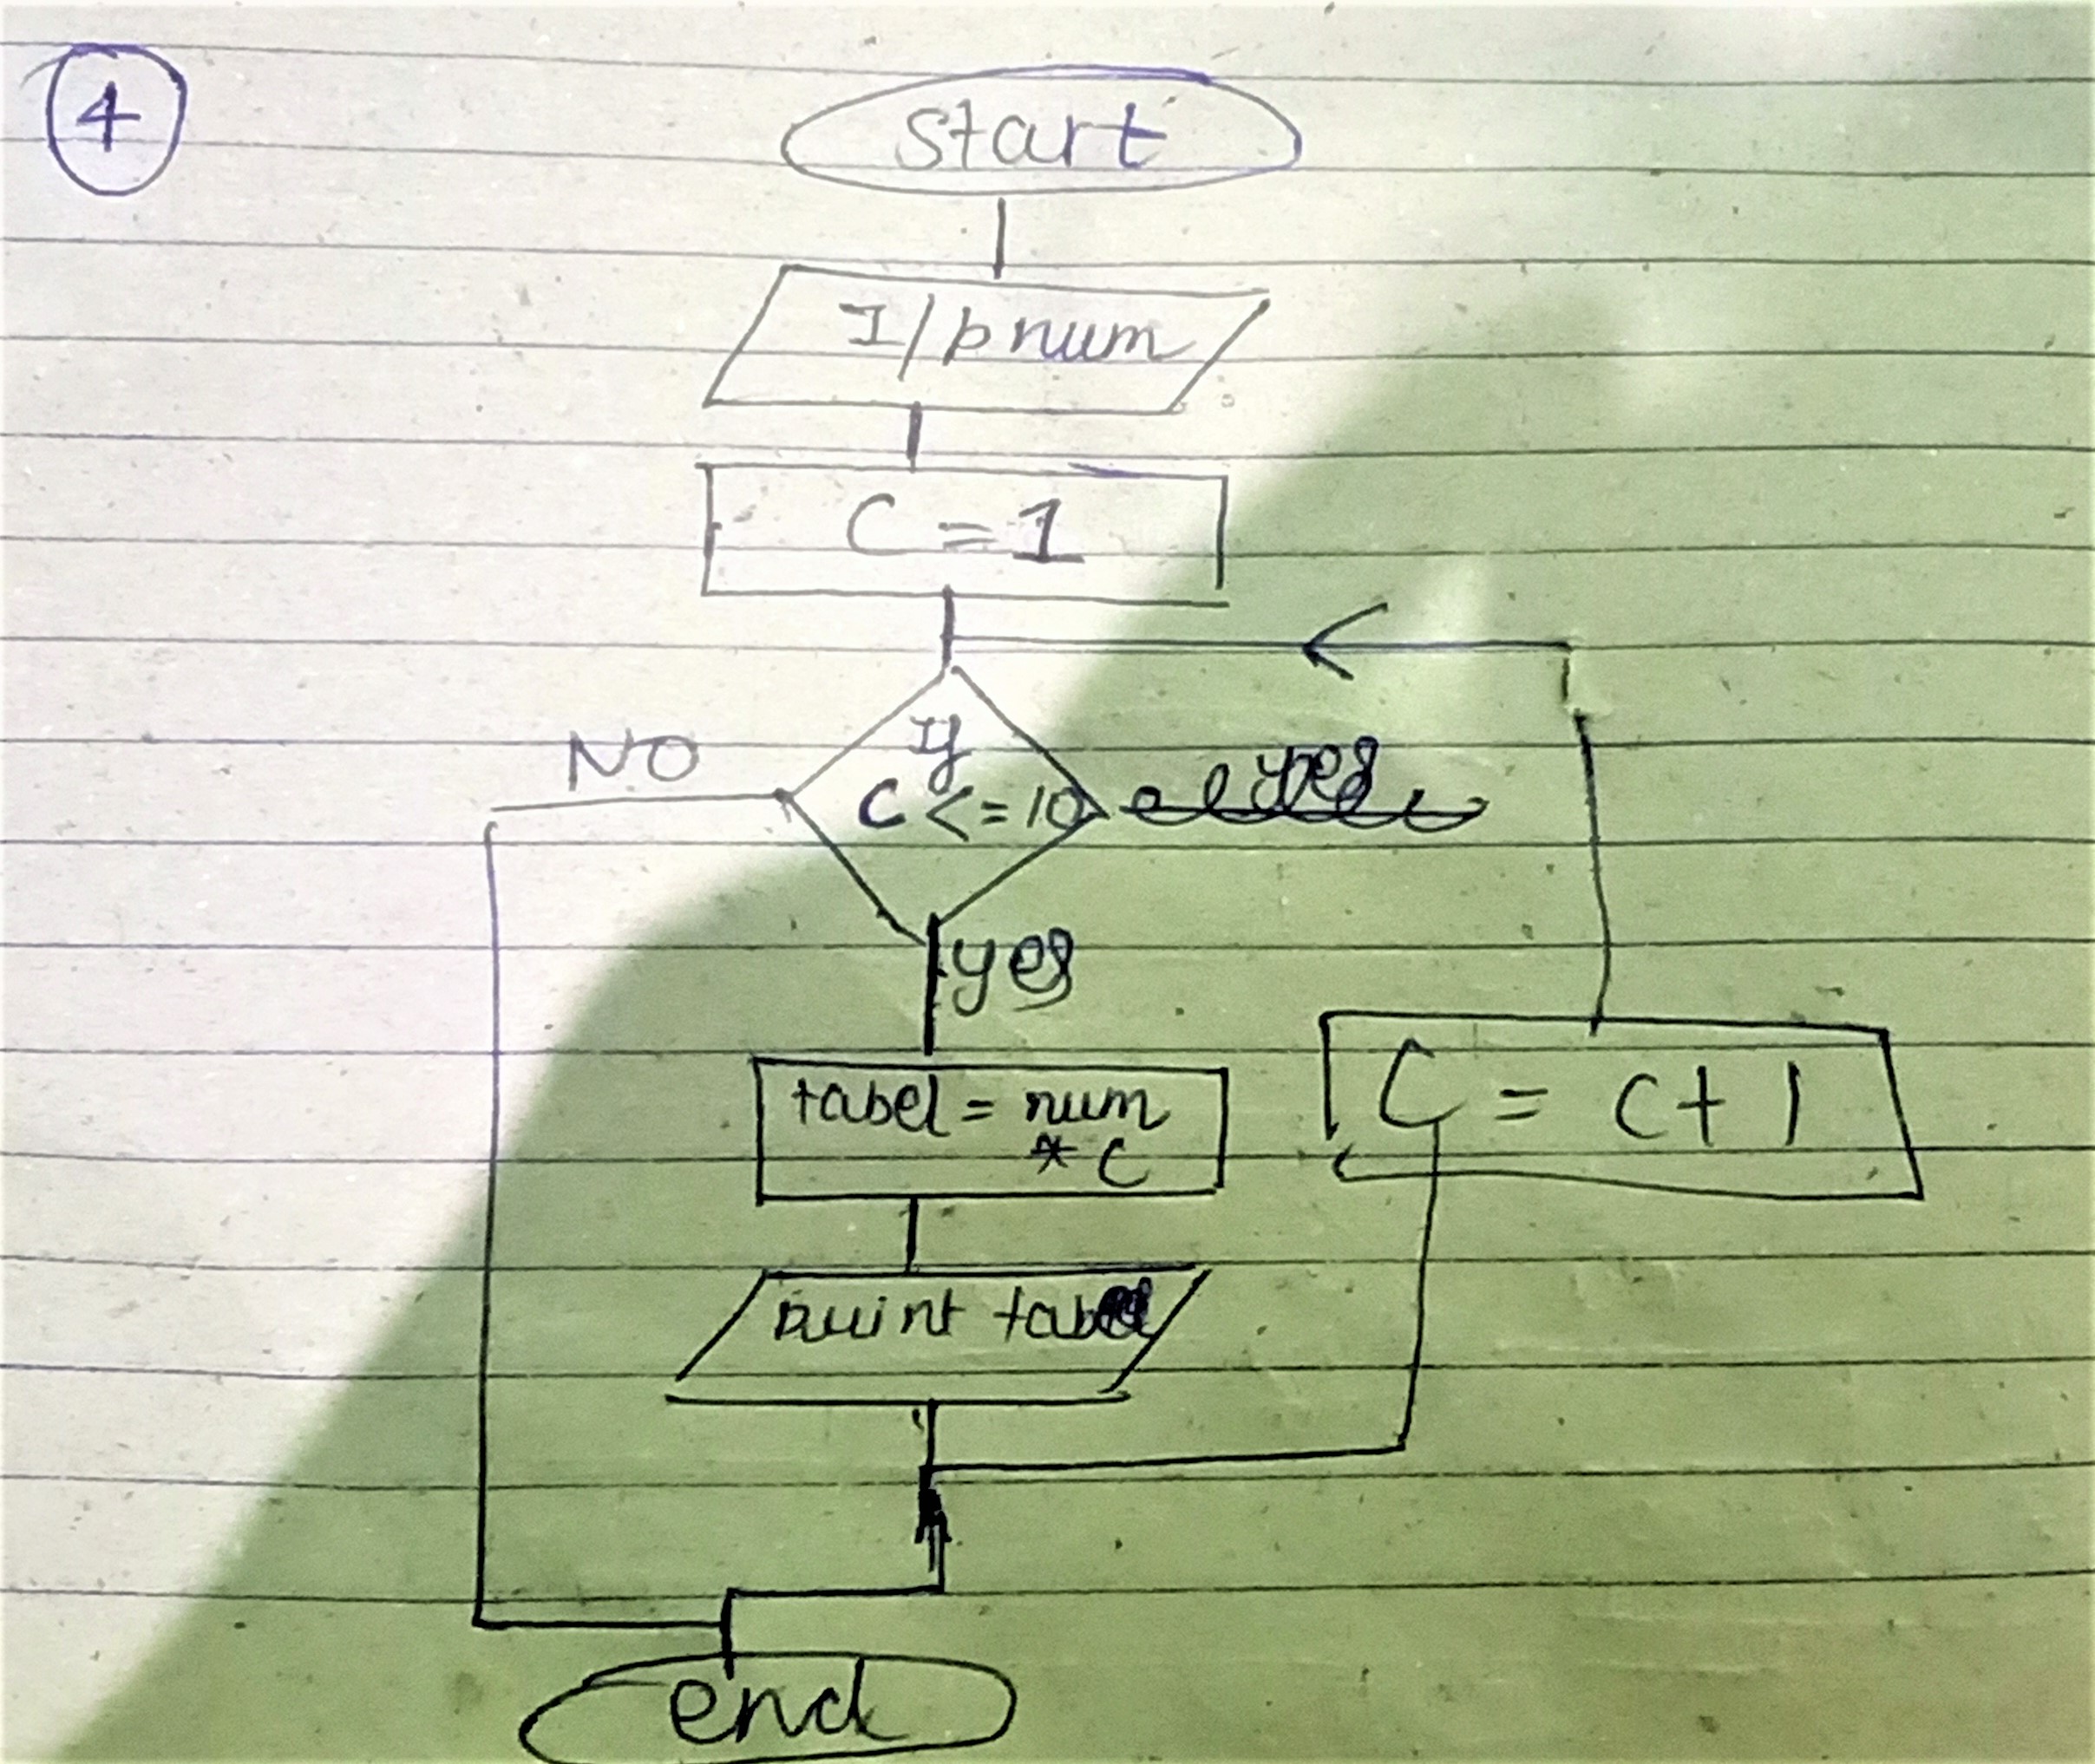 4
start
I/p num
C = 1
If
C <= 10
NO
yes
tabel = num
* C
C = C + 1
print tabel
end